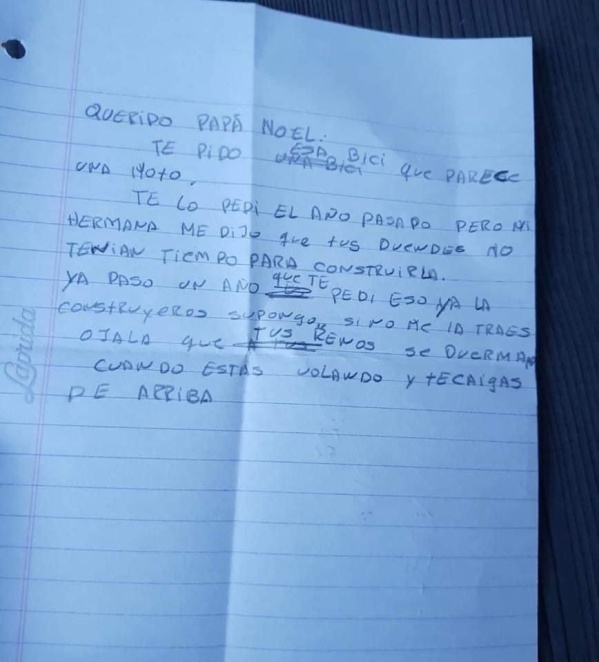 QUERIDO PAPÁ NOEL:
TE PIDO UNA BICI ESA BICI QUE PARECE
UNA MOTO.
TE LO PEDI EL AÑO PASADO PERO MI
HERMANA ME DIJO QUE tUS DUENDES NO
TENIAN TIEMPO PARA CONSTRUIRLA.
YA PASO UN AÑO QUE TE PEDI ESO YA LA
CONStRUYEROS SUPONGO, SI NO ME LA TRAES
OJALA QUE A TUS TUS RENOS SE DUERMAN
CUANDO ESTÁS VOLANDO Y tECAIGAS
DE ARRIBA
Laprida